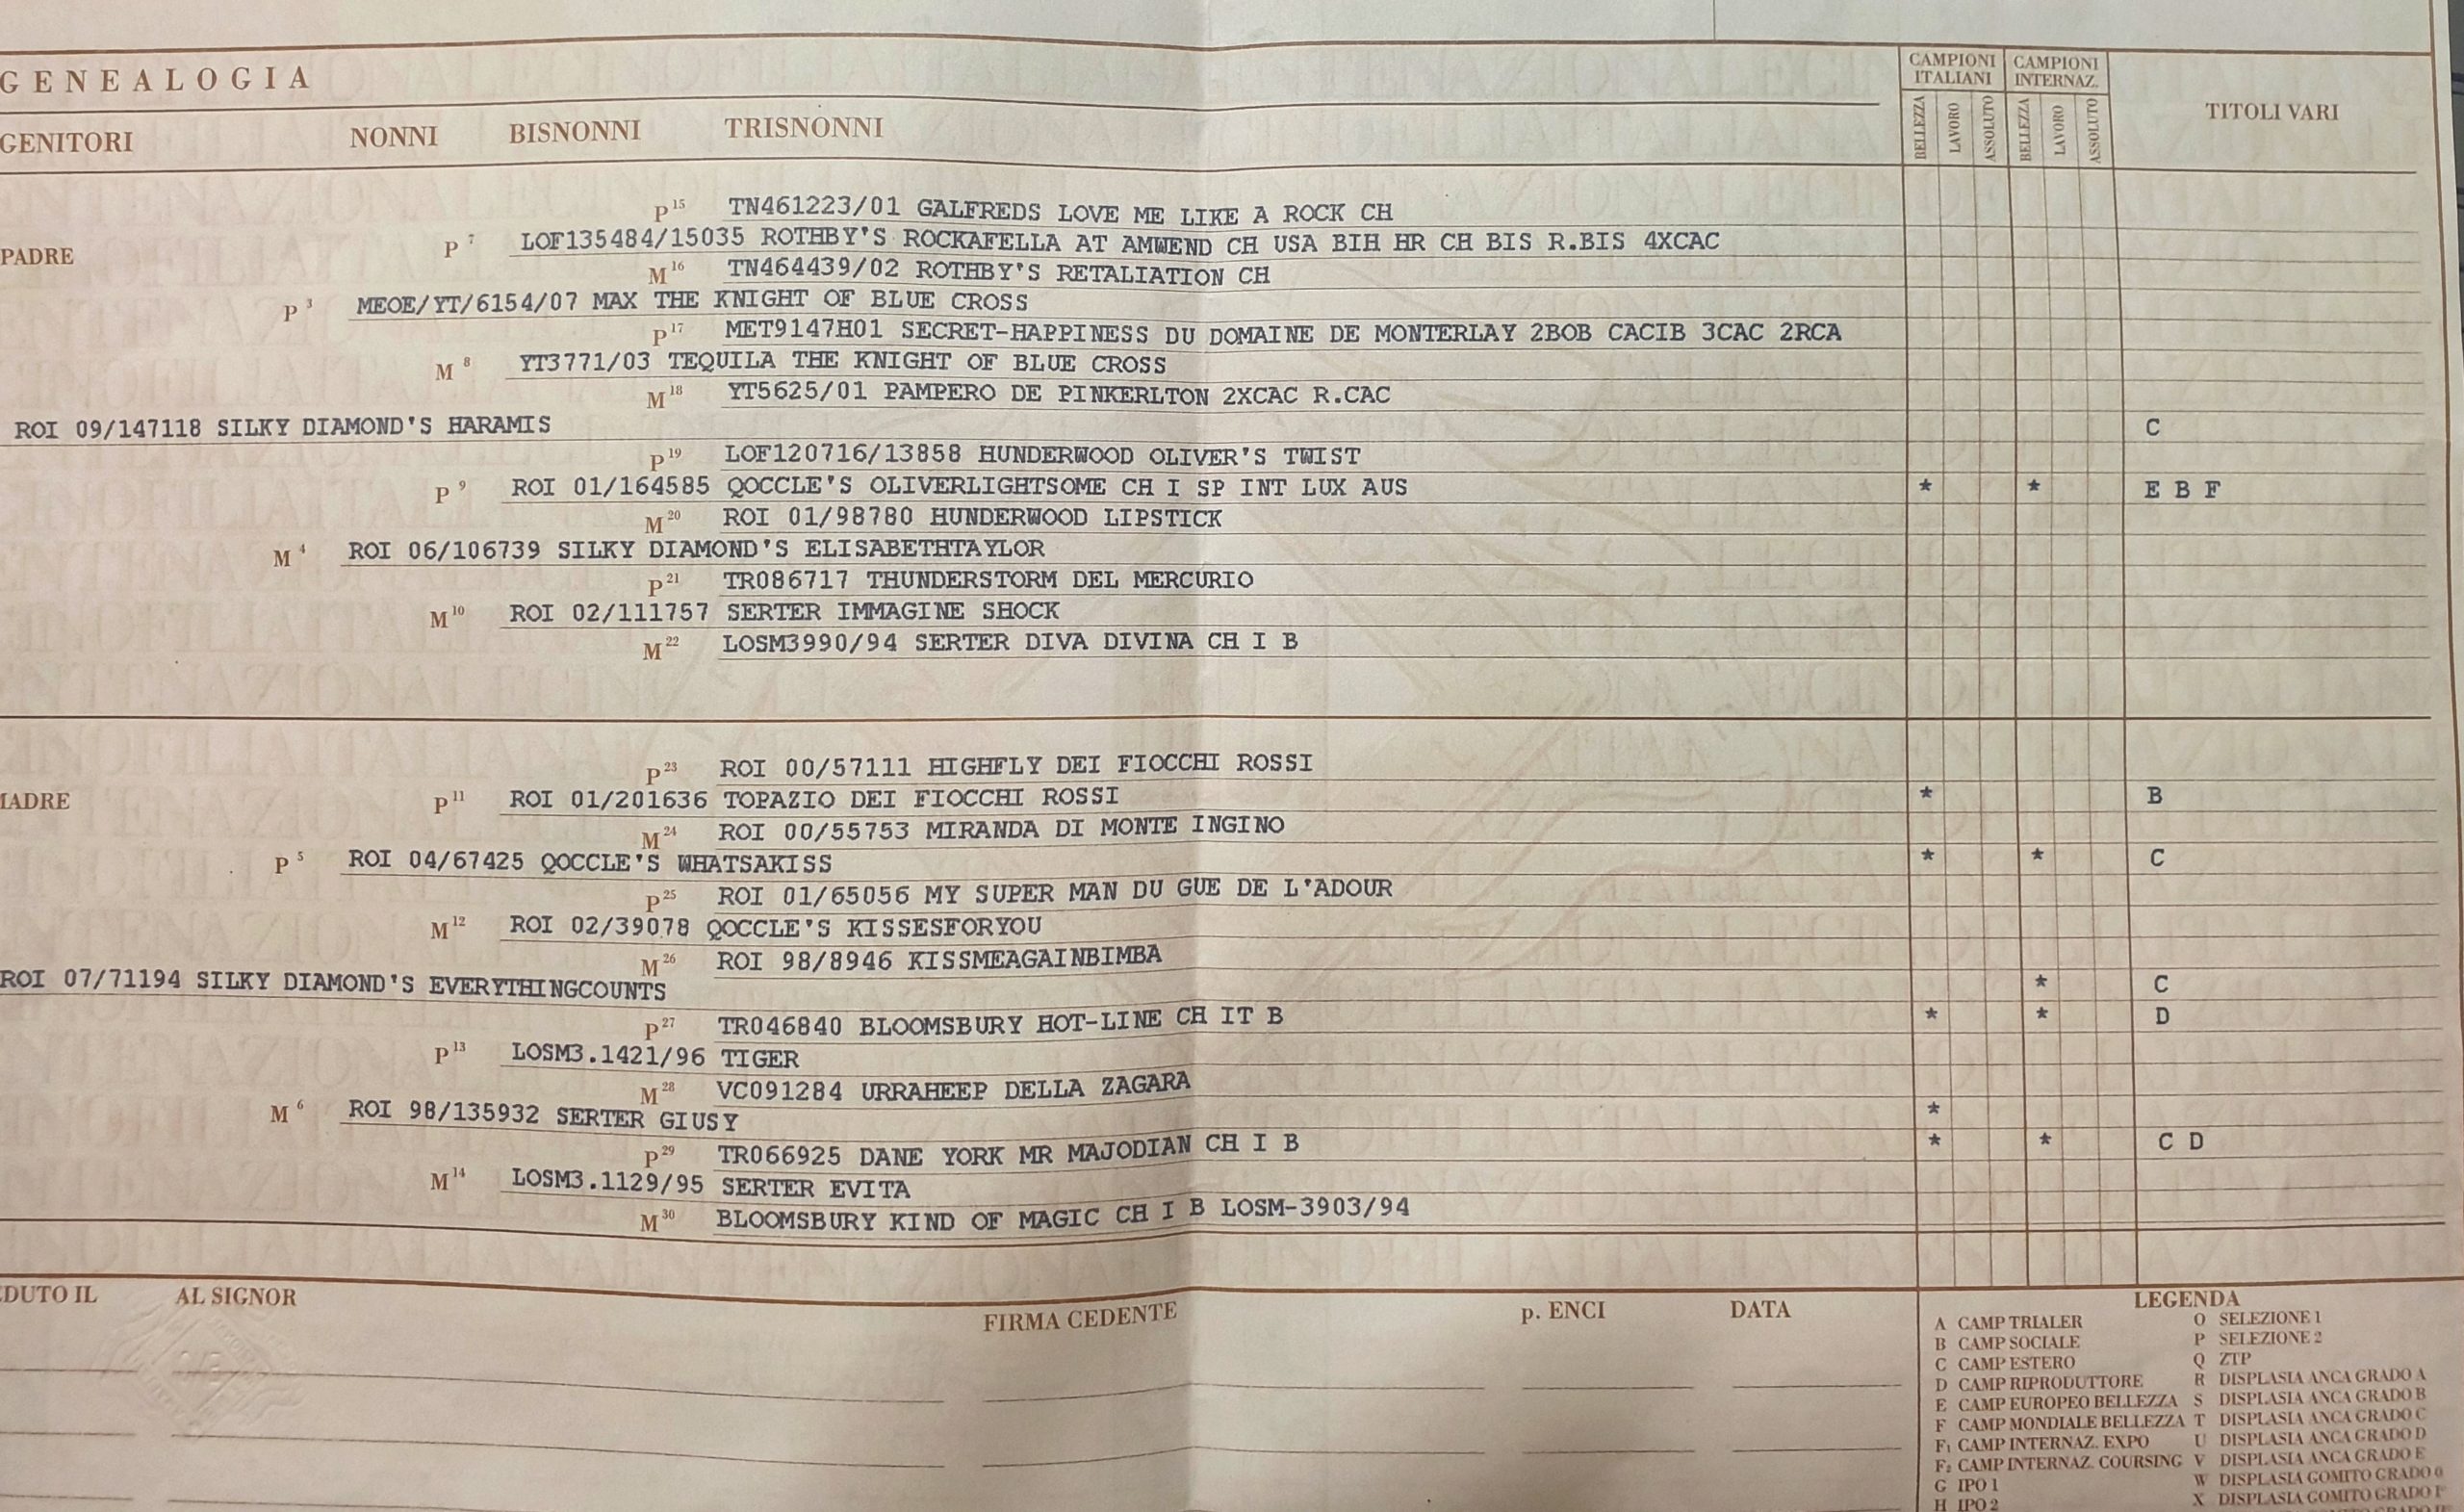 GENEALOGIA
CAMPIONI ITALIANI
CAMPIONI INTERNAZ.
TITOLI VARI
BELLEZZA LAVORO ASSOLUTO BELLEZZA LAVORO ASSOLUTO
GENITORI NONNI BISNONNI TRISNONNI
P15 TN461223/01 GALFREDS LOVE ME LIKE A ROCK CH
PADRE P7 LOF135484/15035 ROTHBY'S ROCKAFELLA AT AMWEND CH USA BIH HR CH BIS R.BIS 4XCAC
M16 TN464439/02 ROTHBY'S RETALIATION CH
P3 MEOE/YT/6154/07 MAX THE KNIGHT OF BLUE CROSS
P17 MET9147H01 SECRET-HAPPINESS DU DOMAINE DE MONTERLAY 2BOB CACIB 3CAC 2RCA
M8 YT3771/03 TEQUILA THE KNIGHT OF BLUE CROSS
M18 YT5625/01 PAMPERO DE PINKERLTON 2XCAC R.CAC
ROI 09/147118 SILKY DIAMOND'S HARAMIS C
P19 LOF120716/13858 HUNDERWOOD OLIVER'S TWIST
P9 ROI 01/164585 QOCCLE'S OLIVERLIGHTSOME CH I SP INT LUX AUS * * E B F
M20 ROI 01/98780 HUNDERWOOD LIPSTICK
M4 ROI 06/106739 SILKY DIAMOND'S ELISABETHTAYLOR
P21 TR086717 THUNDERSTORM DEL MERCURIO
M10 ROI 02/111757 SERTER IMMAGINE SHOCK
M22 LOSM3990/94 SERTER DIVA DIVINA CH I B
P23 ROI 00/57111 HIGHFLY DEI FIOCCHI ROSSI
MADRE P11 ROI 01/201636 TOPAZIO DEI FIOCCHI ROSSI * B
M24 ROI 00/55753 MIRANDA DI MONTE INGINO
P5 ROI 04/67425 QOCCLE'S WHATSAKISS * * C
P25 ROI 01/65056 MY SUPER MAN DU GUE DE L'ADOUR
M12 ROI 02/39078 QOCCLE'S KISSESFORYOU
M26 ROI 98/8946 KISSMEAGAINBIMBA
ROI 07/71194 SILKY DIAMOND'S EVERYTHINGCOUNTS * C
P27 TR046840 BLOOMSBURY HOT-LINE CH IT B * * D
P13 LOSM3.1421/96 TIGER
M28 VC091284 URRAHEEP DELLA ZAGARA
M6 ROI 98/135932 SERTER GIUSY *
P29 TR066925 DANE YORK MR MAJODIAN CH I B * * C D
M14 LOSM3.1129/95 SERTER EVITA
M30 BLOOMSBURY KIND OF MAGIC CH I B LOSM-3903/94
EDUTO IL AL SIGNOR FIRMA CEDENTE p. ENCI DATA
LEGENDA
A CAMP TRIALER O SELEZIONE 1
B CAMP SOCIALE P SELEZIONE 2
C CAMP ESTERO Q ZTP
D CAMP RIPRODUTTORE R DISPLASIA ANCA GRADO A
E CAMP EUROPEO BELLEZZA S DISPLASIA ANCA GRADO B
F CAMP MONDIALE BELLEZZA T DISPLASIA ANCA GRADO C
F1 CAMP INTERNAZ. EXPO U DISPLASIA ANCA GRADO D
F2 CAMP INTERNAZ. COURSING V DISPLASIA ANCA GRADO E
G IPO 1 W DISPLASIA GOMITO GRADO 0
H IPO 2 X DISPLASIA GOMITO GRADO